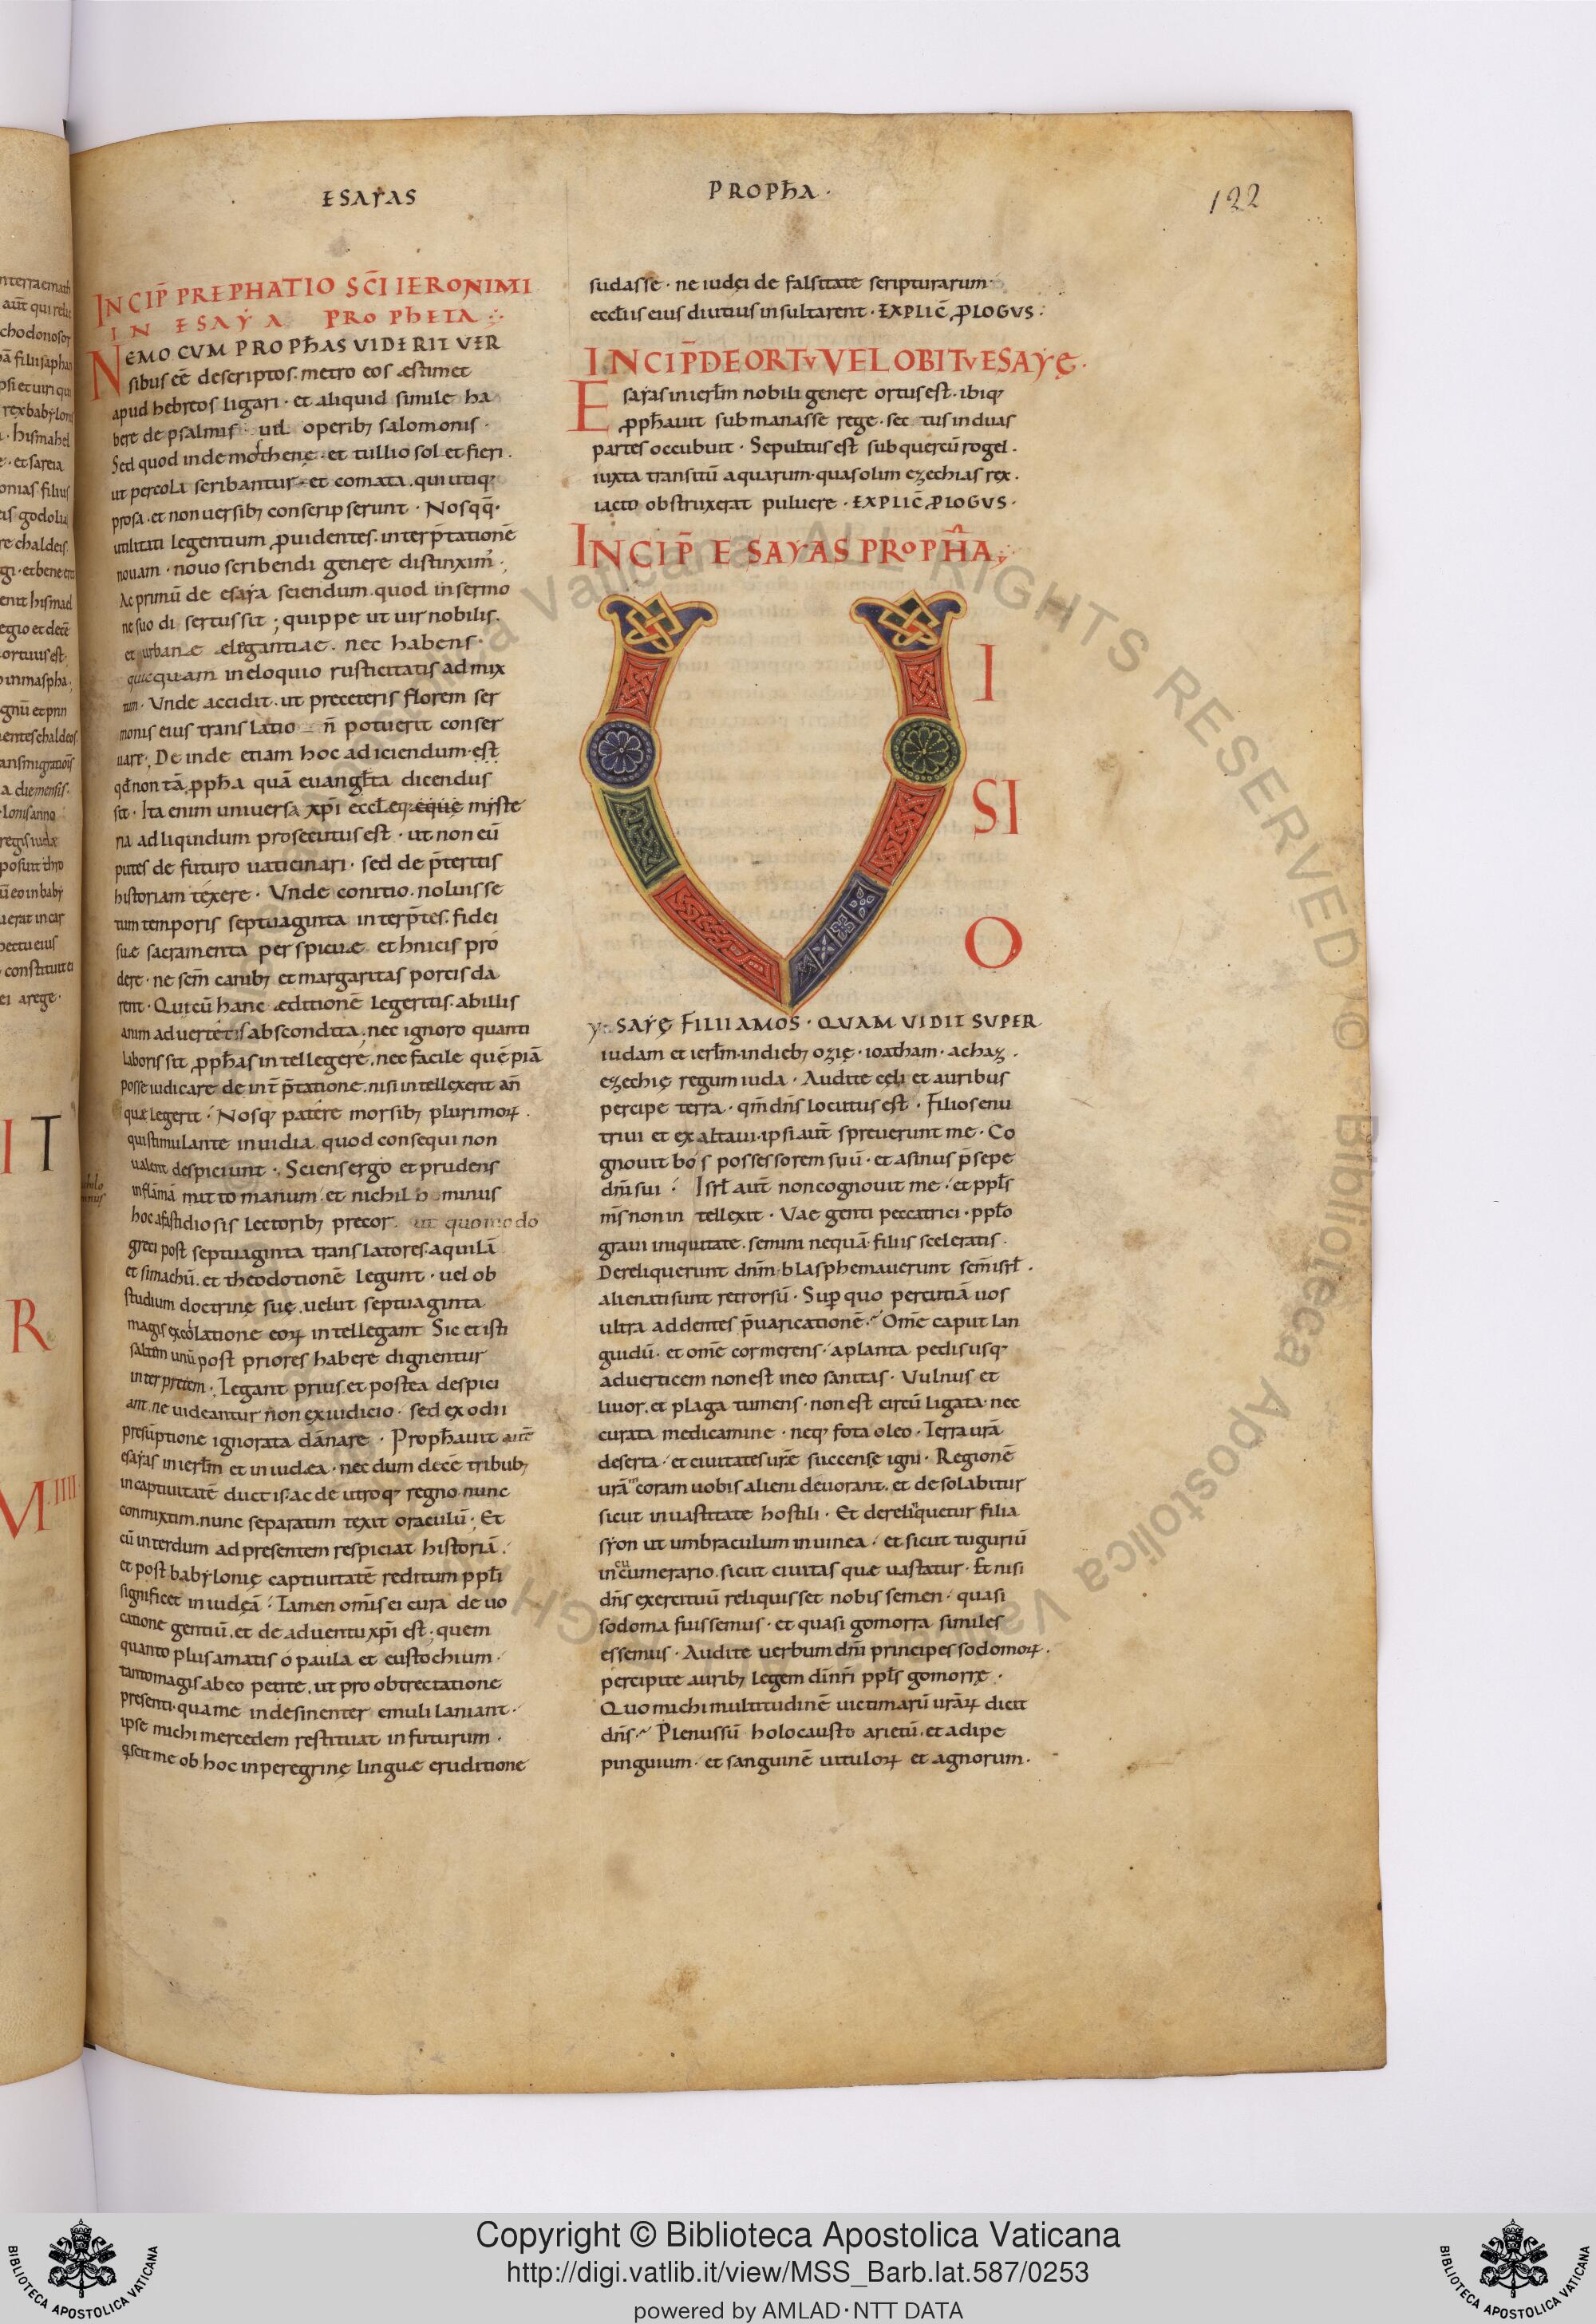 ESAYAS
PROPH̄A ·
122
INCIP̄ PREPHATIO SC̄I IERONIMI
IN ESAYA PROPHETA
NEMO CVM PROPH̄AS VIDERIT VER
sibus eē descriptos. metro eos æstimet
apud hebreos ligari · et aliquid simile ha
bere de psalmis · uel operib; salomonis ·
Sed quod in demosthene · et tullio solet fieri .
ut per cola scribantur et comata . qui utiq;
prosa . et non uersib; conscripserunt · Nos qq̄ ·
utilitati legentium ꝓuidentes . interp̄tationē
nouam · nouo scribendi genere distinxim' .
Ac primū de esaya sciendum quod in sermo
ne suo disertus sit ; quippe ut uir nobilis .
et urbanæ elegantiae . nec habens ·
quicquam in eloquio rusticitatis admix
tum · Unde accidit . ut pre ceteris florem ser
monis eius translatio n̄ potuerit conser
uare . De inde etiam hoc adiciendum · est
qđ non tā ꝓph̄a quā euangl̄ista dicendus
sit · Ita enim uniuersa xp̄i eccl̄eq; myste
ria ad liquidum prosecutus est · ut non eū
putes de futuro uaticinari · sed de p̄teritis
historiam texere · Unde conitio . noluisse
tum temporis septuaginta interp̄tes . fidei
suæ sacramenta perspicuæ ethnicis pro
dere · ne sem̄ canib; et margaritas porcis da
rent · Qui cū hanc æditionē legeritis . ab illis
animaduertetis abscondita . nec ignoro quanti
laboris sit ꝓph̄as intellegere . nec facile quēpiā
posse iudicare de int̄p̄tatione . nisi intellexerit an̄
quæ legerit · Nosq; patere morsib; plurimoꝝ .
qui stimulante inuidia quod consequi non
ualent despiciunt · Sciens ergo et prudens
in flāmā mitto manum . et nichilominus
hoc a fastidiosis lectorib; precor . ut quomodo
greci post septuaginta translatores . aquilā
et simachū . et theodotionē legunt · uel ob
studium doctrinę suę . uelut septuaginta
magis ex colatione eoꝝ intellegant Sic et isti
saltim unū post priores habere dignentur
interpretem . Legant prius . et postea despici
ant . ne uideantur non ex iudicio · sed ex odii
presūptione ignorata dānare · Proph̄auit aut̄
esayas in ierl̄m et in iudæa · nec dum decē tribub;
in captiuitatē ductis . ac de utroq; regno . nunc
conmixtim . nunc separatim texit oraculū · Et
cū interdum ad presentem respiciat historiā .
et post babylonię captiuitatē reditum ppl̄i
significet in iudęā · Tamen om̄is ei cura de uo
catione gentiū . et de aduentu xp̄i est . quem
quanto plus amatis o paula et eustochium ·
tanto magis ab eo petite . ut pro obtrectatione
presenti · qua me indesinenter emuli laniant ·
ipse michi mercedem restituat in futurum ·
q scit me ob hoc in peregrinę linguæ eruditione
sudasse · ne iudęi de falsitate scripturarum
eccl̄iis eius diutius insultarent · EXPLIC̄ ꝒLOGVS :
INCIP̄ DE ORTV VEL OBITV ESAYĘ ·
Esayas in ierl̄m nobili genere ortus est . ibiq;
ꝓph̄auit sub manasse rege · sectus in duas
partes occubuit · Sepultus est sub quercū rogel .
iuxta transitū aquarum · quas olim ezechias rex .
iacto obstruxerat puluere · EXPLIC̄ ꝒLOGVS ·
INCIP̄ ESAYAS PROPH̄A
V I
SI
O
YSAYĘ FILII AMOS · QUAM VIDIT SVPER
iudam et ierl̄m · in dieb; ozię · ioatham · achaz .
ezechię regum iuda · Audite cęli et auribus
percipe terra · qm̄ dn̄s locutus est · Filios enu
triui et exaltaui · ipsi aut̄ spreuerunt me · Co
gnouit bos possessorem suū · et asinus p̄sepe
dn̄i sui · Isrl̄ aut̄ non cognouit me · et ppl̄s
m̄s non intellexit · Vae genti peccatrici · ppl̄o
graui iniquitate . semini nequā filiis sceleratis .
Dereliquerunt dn̄m · blasphemauerunt sc̄m isrl̄ .
alienati sunt retrorsū · Sup quo percutiā uos
ultra addentes p̄uaricationē · Om̄e caput lan
guidū · et om̄e cor merens · a planta pedis usq;
ad uerticem non est in eo sanitas · Vulnus et
liuor . et plaga tumens · non est circū ligata · nec
curata medicamine · neq; fota oleo · Terra ur̄a
deserta · et ciuitates ur̄e succense igni · Regionē
ur̄am coram uobis alieni deuorant . et desolabitur
sicut in uastitate hostili · Et derelinquetur filia
syon ut umbraculum in uinea · et sicut tuguriū
in cucumerario . sicut ciuitas que uastatur · Et nisi
dn̄s exercituū reliquisset nobis semen · quasi
sodoma fuissemus · et quasi gomorra similes
essemus · Audite uerbum dn̄i principes sodomoꝝ .
percipite aurib; legem di n̄ri ppl̄s gomorrę ·
Quo michi multitudinē uictimarū ur̄aꝝ dicit
dn̄s · Plenus sū holocausto arietū . et adipe
pinguium · et sanguinē uituloꝝ et agnorum ·
Copyright © Biblioteca Apostolica Vaticana
http://digi.vatlib.it/view/MSS_Barb.lat.587/0253
powered by AMLAD·NTT DATA
BIBLIOTECA APOSTOLICA VATICANA
BIBLIOTECA APOSTOLICA VATICANA